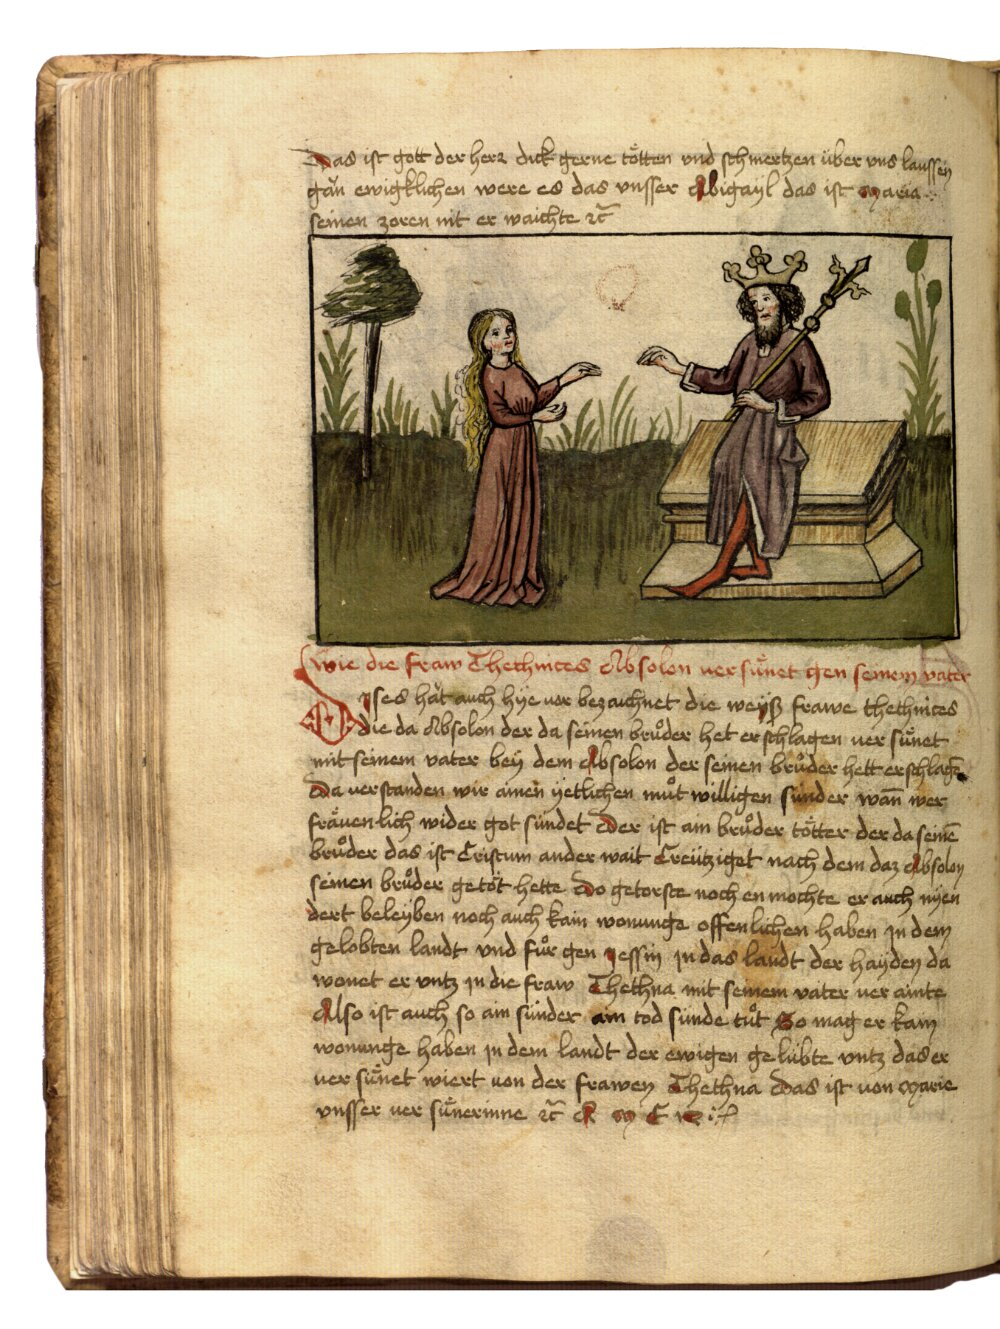 Das ist gott der herz dick gerne tötten vnd schmertzen über vns laussen
gän ewigklichen were es das vnsser Abigayl das ist Maria
seinen zoren nit er waichte ꝛc̄
Wie die fraw Thethnites Absolon versůnet gen seinem vater
Dises hät auch hye vor bezaichnet die weyß frawe thethnites
die da Absolon der da seinen brůder het erschlagen ver sůnet
mit seinem vater bey dem Absolon der seinen brůder hett erschlagē
Da verstanden wir ainen yetlichen můt willigen sünder wann wer
fräuenlich wider got sündet Der ist am brůder tötter der da seinē
brůder das ist Cristum ander wait Creütziget nach dem daz Absolon
seinen brůder getöt hette Do getorste noch en mochte er auch nyen
dert beleyben noch auch kain wonunge offenlichen haben jn dem
gelobten landt vnd fůr gen jessuj jn das landt der hayden da
wonet er vntz jn die fraw Thethna mit seinem vater ver ainte
Also ist auch so ain sünder am tod sünde tůt So mag er kain
wonunge haben jn dem landt der ewigen gelübte vntz das er
ver sůnet wiert von der frawen Thethna Das ist von Marie
vnsser ver sůnerinne ꝛc̄ A M E N